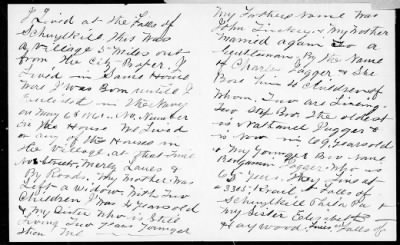 I Lived at the Falls of
Schuylkill This was
a village 5 miles out
from the City Proper. I
Lived in Same House
Were I was Born untill I
enlisted in the Navy
on May 6th 1861. No Number
on the House We Lived
or any of the Houses in
the Village. at that time
No Streets. Merly Lanes &
By Roads. My Mother Was
Left a Widow. With Two
Children I Was 4 years old
& My Sister Who is Still
living Two years Younger
than Me
My Fathers Name Was
John. & My Mother
Married again To a
Gentleman. By the Name
of Charles Jagger & She
Bore him 4 Children of
Whom. Two are Living.
Two Step Bro The oldest
is Nathaniel Jagger &
is Now in 69 years old
& My Younger Bro. Name
Benjamin Who is
65 years. They Live at
3365 Falls of
Schuylkill Phila Pa &
My Sister Elizabeth
Haywood.